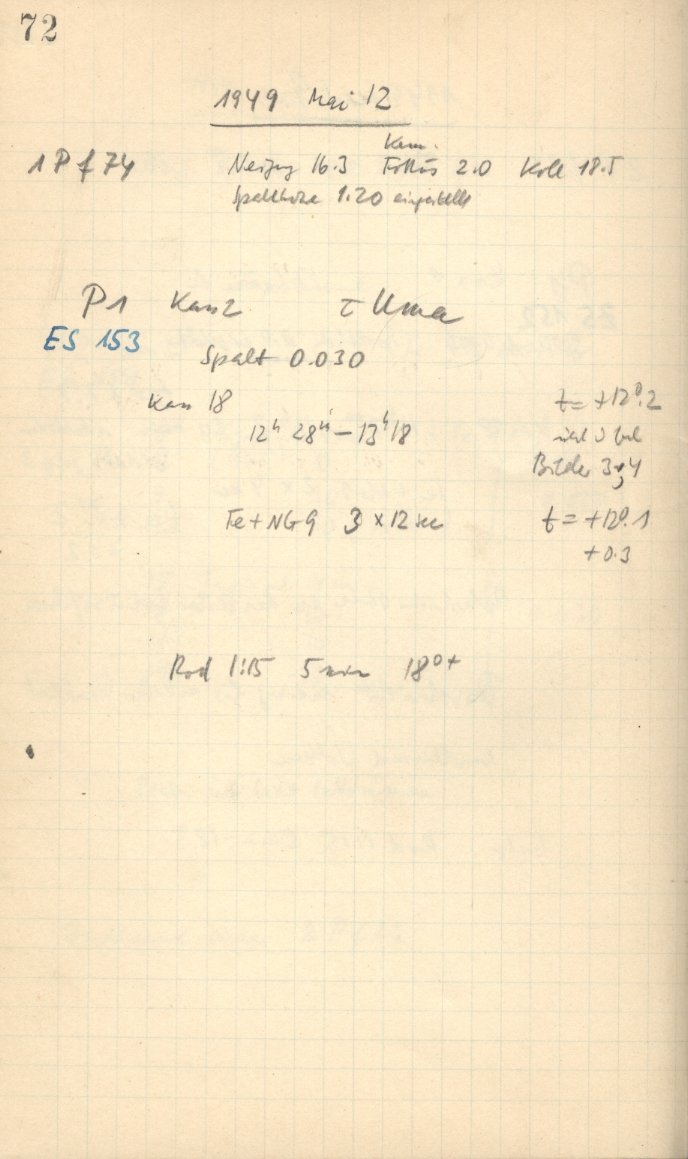 72
1949 Mai 12
Kam.
1 P f 74 Neigung 16.3 Fokus 2.0 Koll 18.5
Spalthöhe 1.20 eingestellt
P1 Kam 2 τ Uma
ES 153
Spalt 0.030
Kam 18 t = +12°.2
12h 28m – 13h 18
Bilder 3, 4
Fe + NG 9 3 × 12 sec t = +12°.1
+0.3
Rod 1:15 5 min 18°+